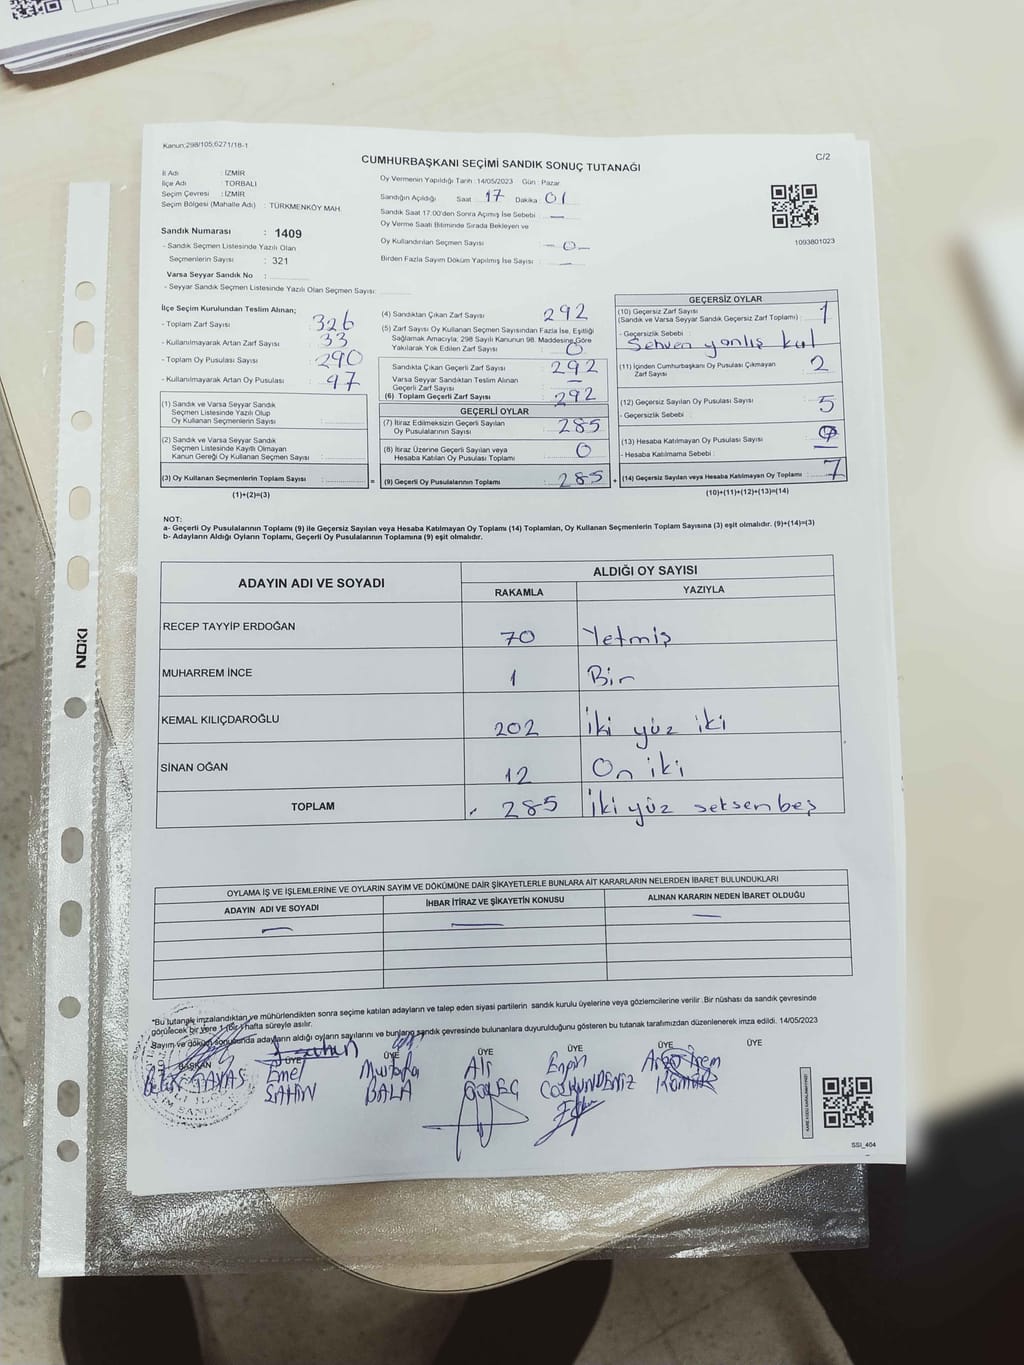 Kanun;298/105,6271/18-1
C/2
CUMHURBAŞKANI SEÇİMİ SANDIK SONUÇ TUTANAĞI
İl Adı : İZMİR
İlçe Adı : TORBALI
Seçim Çevresi : İZMİR
Seçim Bölgesi (Mahalle Adı) : TÜRKMENKÖY MAH.
Sandık Numarası : 1409
- Sandık Seçmen Listesinde Yazılı Olan
Seçmenlerin Sayısı : 321
Varsa Seyyar Sandık No :
- Seyyar Sandık Seçmen Listesinde Yazılı Olan Seçmen Sayısı:
Oy Vermenin Yapıldığı Tarih : 14/05/2023 Gün : Pazar
Sandığın Açıldığı Saat 17 Dakika 01
Sandık Saat 17:00'den Sonra Açımış İse Sebebi —
Oy Verme Saati Bitiminde Sırada Bekleyen ve
Oy Kullandırılan Seçmen Sayısı — 0 —
Birden Fazla Sayım Döküm Yapılmış İse Sayısı : —
1093801023
İlçe Seçim Kurulundan Teslim Alınan;
- Toplam Zarf Sayısı : 326
- Kullanılmayarak Artan Zarf Sayısı : 33
- Toplam Oy Pusulası Sayısı : 290
- Kullanılmayarak Artan Oy Pusulası : 97
(1) Sandık ve Varsa Seyyar Sandık
Seçmen Listesinde Yazılı Olup
Oy Kullanan Seçmenlerin Sayısı :
(2) Sandık ve Varsa Seyyar Sandık
Seçmen Listesinde Kayıtlı Olmayan
Kanun Gereği Oy Kullanan Seçmen Sayısı :
(3) Oy Kullanan Seçmenlerin Toplam Sayısı :
(1)+(2)=(3)
(4) Sandıktan Çıkan Zarf Sayısı : 292
(5) Zarf Sayısı Oy Kullanan Seçmen Sayısından Fazla İse, Eşitliği
Sağlamak Amacıyla; 298 Sayılı Kanunun 98. Maddesine Göre
Yakılarak Yok Edilen Zarf Sayısı : 0
Sandıkta Çıkan Geçerli Zarf Sayısı : 292
Varsa Seyyar Sandıktan Teslim Alınan
Geçerli Zarf Sayısı : —
(6) Toplam Geçerli Zarf Sayısı : 292
GEÇERLİ OYLAR
(7) İtiraz Edilmeksizin Geçerli Sayılan
Oy Pusulalarının Sayısı : 285
(8) İtiraz Üzerine Geçerli Sayılan veya
Hesaba Katılan Oy Pusulası Toplamı : 0
= (9) Geçerli Oy Pusulalarının Toplamı : 285
GEÇERSİZ OYLAR
(10) Geçersiz Zarf Sayısı
(Sandık ve Varsa Seyyar Sandık Geçersiz Zarf Toplamı) : 1
- Geçersizlik Sebebi :
Sehven yanlış kul
(11) İçinden Cumhurbaşkanı Oy Pusulası Çıkmayan
Zarf Sayısı : 2
(12) Geçersiz Sayılan Oy Pusulası Sayısı : 5
- Geçersizlik Sebebi :
(13) Hesaba Katılmayan Oy Pusulası Sayısı :
- Hesaba Katılmama Sebebi :
+ (14) Geçersiz Sayılan veya Hesaba Katılmayan Oy Toplamı : 7
(10)+(11)+(12)+(13)=(14)
NOT:
a- Geçerli Oy Pusulalarının Toplamı (9) ile Geçersiz Sayılan veya Hesaba Katılmayan Oy Toplamı (14) Toplamları, Oy Kullanan Seçmenlerin Toplam Sayısına (3) eşit olmalıdır. (9)+(14)=(3)
b- Adayların Aldığı Oyların Toplamı, Geçerli Oy Pusulalarının Toplamına (9) eşit olmalıdır.
ADAYIN ADI VE SOYADI
ALDIĞI OY SAYISI
RAKAMLA YAZIYLA
RECEP TAYYİP ERDOĞAN 70 Yetmiş
MUHARREM İNCE 1 Bir
KEMAL KILIÇDAROĞLU 202 İki yüz iki
SİNAN OĞAN 12 On iki
TOPLAM 285 İki yüz seksen beş
OYLAMA İŞ VE İŞLEMLERİNE VE OYLARIN SAYIM VE DÖKÜMÜNE DAİR ŞİKAYETLERLE BUNLARA AİT KARARLARIN NELERDEN İBARET BULUNDUKLARI
ADAYIN ADI VE SOYADI İHBAR İTİRAZ VE ŞİKAYETİN KONUSU ALINAN KARARIN NEDEN İBARET OLDUĞU
— — —
"Bu tutanak imzalandıktan ve mühürlendikten sonra seçime katılan adayların ve talep eden siyasi partilerin sandık kurulu üyelerine veya gözlemcilerine verilir .Bir nüshası da sandık çevresinde
görülecek bir yere 1 (bir) hafta süreyle asılır.
Sayım ve döküm sonucunda adayların aldığı oyların sayılarını ve bunların sandık çevresinde bulunanlara duyurulduğunu gösteren bu tutanak tarafımızdan düzenlenerek imza edildi. 14/05/2023
BAŞKAN ÜYE ÜYE ÜYE ÜYE ÜYE ÜYE
Emel Mustafa Ali
ŞAHİN BALA
SSİ_404
NOKI